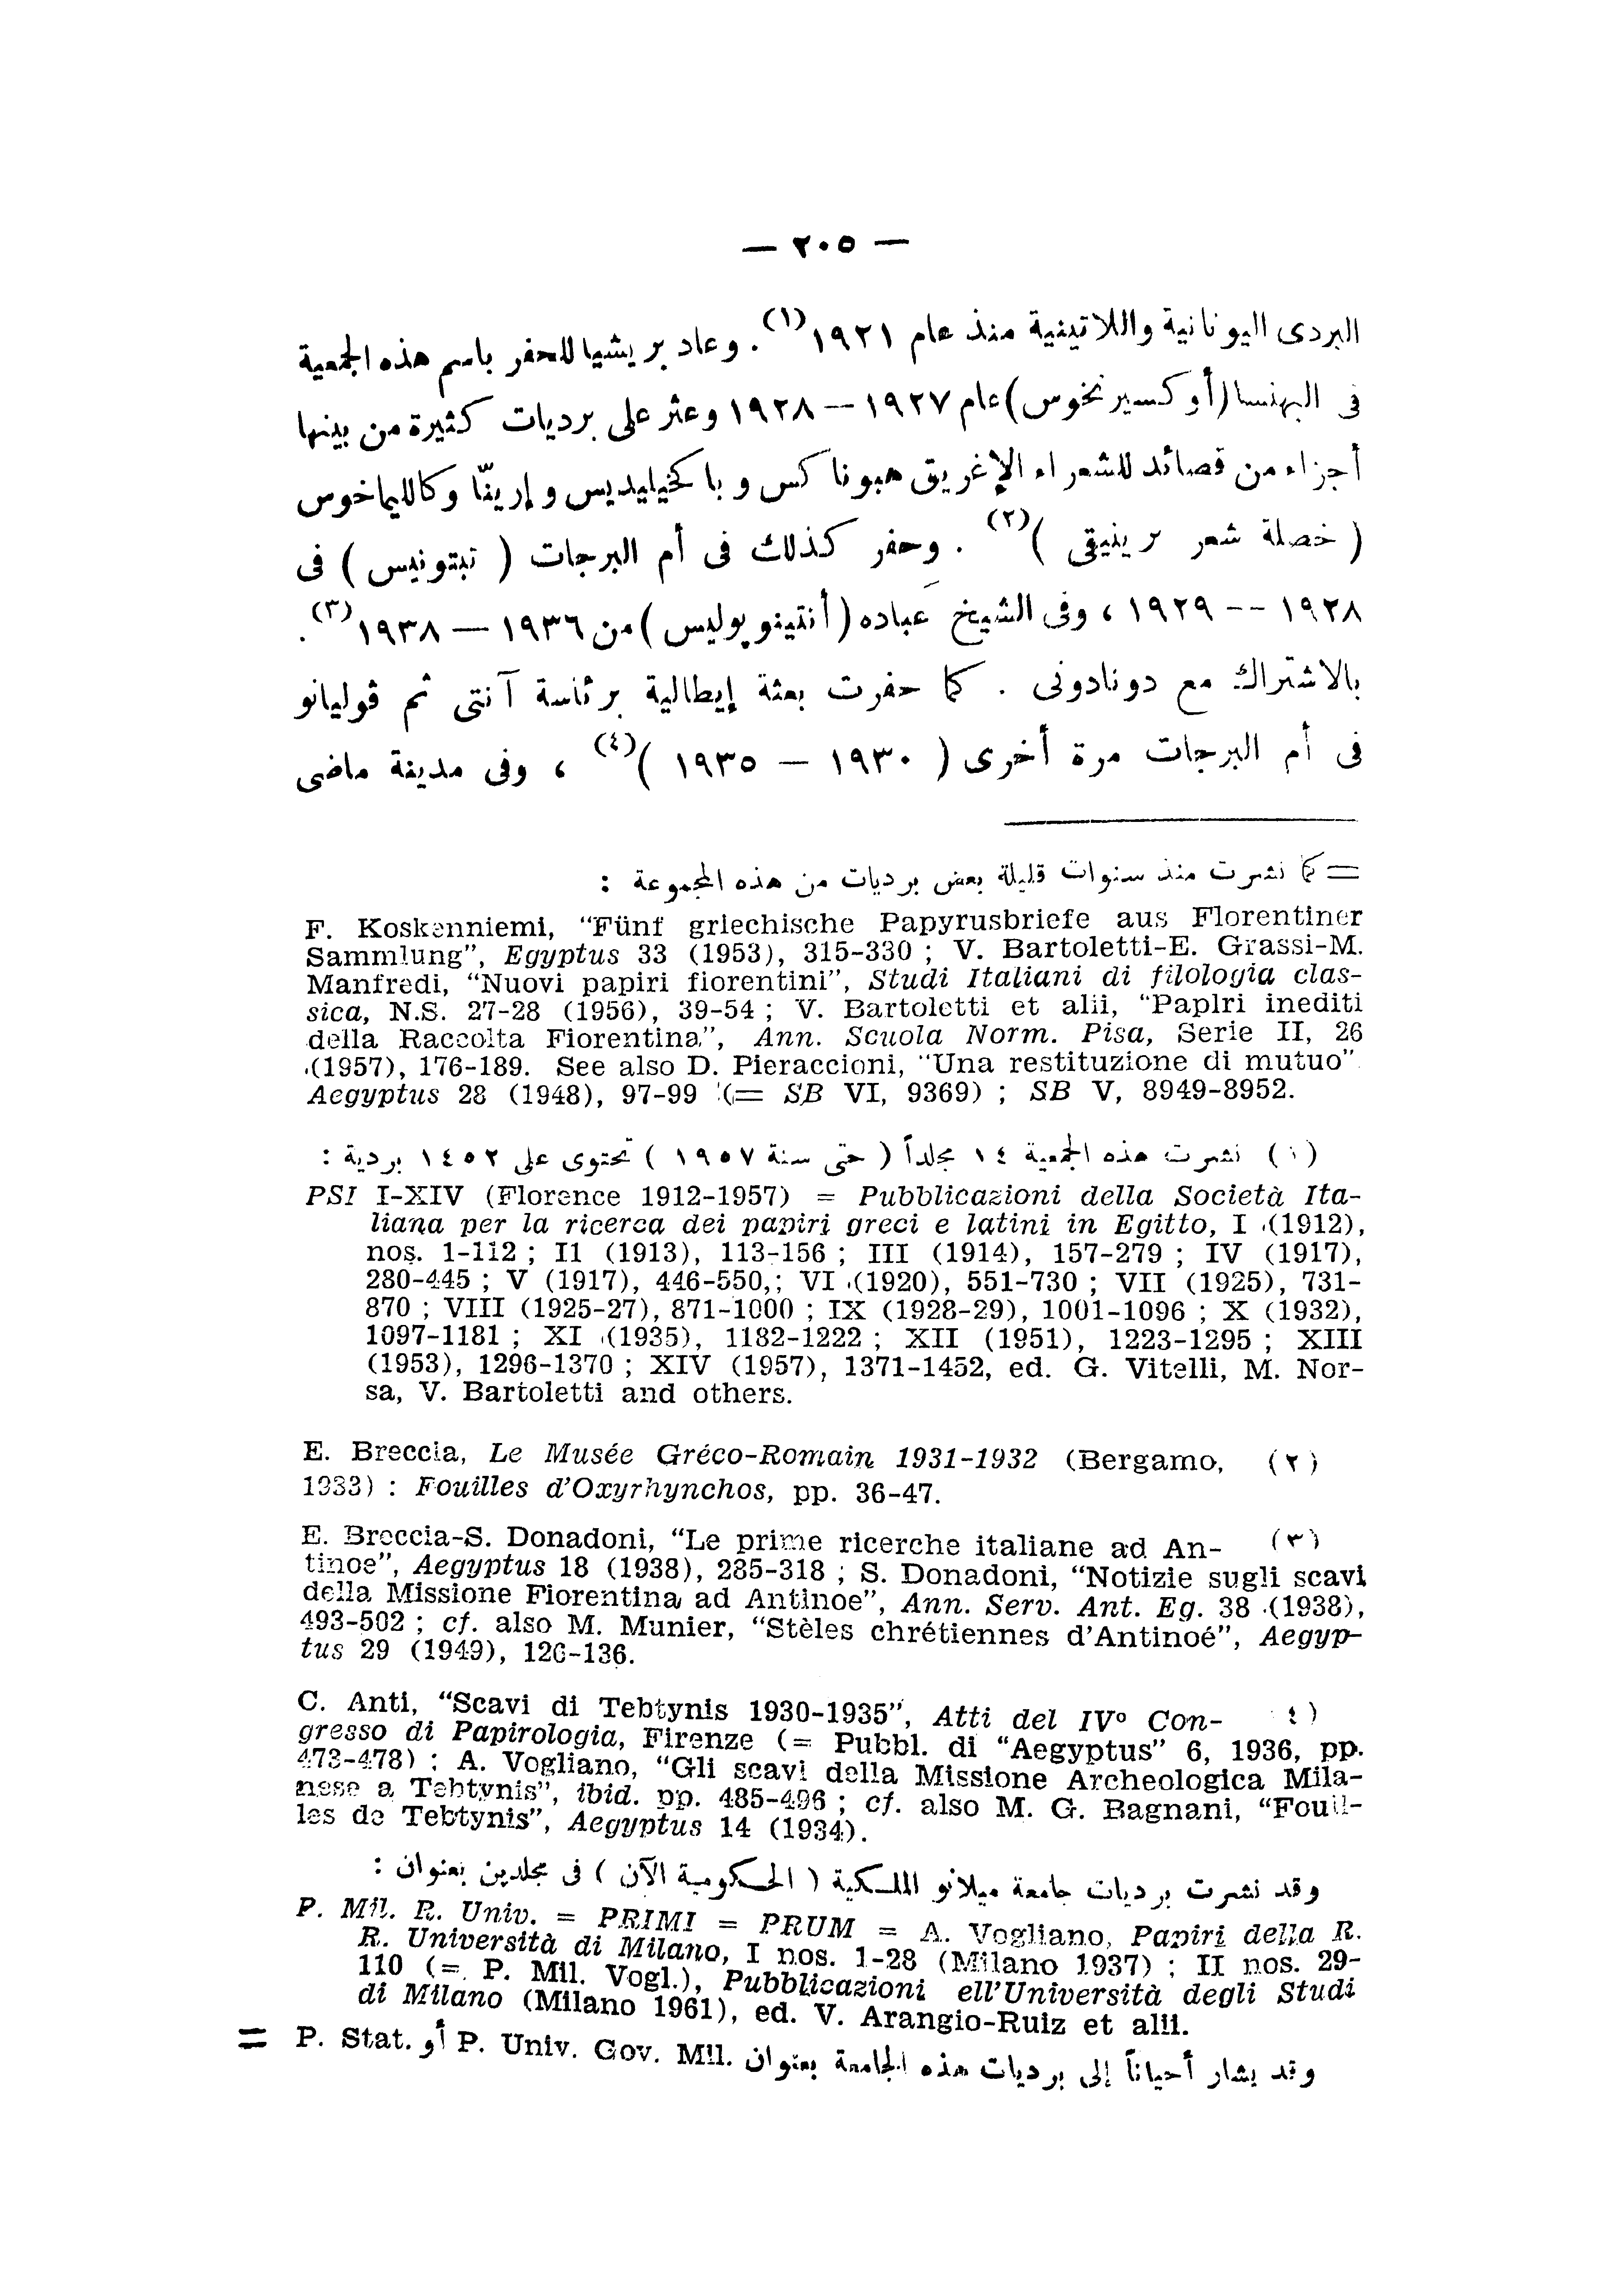 — ٢٠٥ —
البردى اليونانية واللاتينية منذ عام ١٩٢١(١). وعاد بريشيا للحفر باسم هذه الجمعية
فى البهنسا (أوكسيرنخوس) عام ١٩٢٧ — ١٩٢٨ وعثر على برديات كثيرة من بينها
أجزاء من قصائد للشعراء الإغريق هبوناكس وباكخيليديس وإرينّا وكاليماخوس
( خصلة شعر برينيقى )(٢) . وحفر كذلك فى أم البرجات ( تبتونيس ) فى
١٩٢٨ -- ١٩٢٩ ، وفى الشيخ عباده (أنتينوپوليس) من ١٩٣٦ — ١٩٣٨(٣).
بالاشتراك مع دونادونى . كما حفرت بعثة إيطالية برئاسة آنتى ثم ڤوليانو
فى أم البرجات مرة أخرى ( ١٩٣٠ — ١٩٣٥ )(٤) ، وفى مدينة ماضى
= كما نشرت منذ سنوات قليلة بعض برديات من هذه المجموعة :
F. Koskenniemi, “Fünf griechische Papyrusbriefe aus Florentiner
Sammlung”, Egyptus 33 (1953), 315-330 ; V. Bartoletti-E. Grassi-M.
Manfredi, “Nuovi papiri fiorentini”, Studi Italiani di filologia clas-
sica, N.S. 27-28 (1956), 39-54 ; V. Bartoletti et alii, “Papiri inediti
della Raccolta Fiorentina”, Ann. Scuola Norm. Pisa, Serie II, 26
(1957), 176-189. See also D. Pieraccioni, “Una restituzione di mutuo”
Aegyptus 28 (1948), 97-99 (= SB VI, 9369) ; SB V, 8949-8952.
(١) نشرت هذه الجمعية ١٤ مجلداً ( حتى سنة ١٩٥٧ ) تحتوى على ١٤٥٢ بردية :
PSI I-XIV (Florence 1912-1957) = Pubblicazioni della Società Ita-
liana per la ricerca dei papiri greci e latini in Egitto, I (1912),
nos. 1-112 ; II (1913), 113-156 ; III (1914), 157-279 ; IV (1917),
280-445 ; V (1917), 446-550,; VI (1920), 551-730 ; VII (1925), 731-
870 ; VIII (1925-27), 871-1000 ; IX (1928-29), 1001-1096 ; X (1932),
1097-1181 ; XI (1935), 1182-1222 ; XII (1951), 1223-1295 ; XIII
(1953), 1296-1370 ; XIV (1957), 1371-1452, ed. G. Vitelli, M. Nor-
sa, V. Bartoletti and others.
(٢) E. Breccia, Le Musée Gréco-Romain 1931-1932 (Bergamo,
1933) : Fouilles d’Oxyrhynchos, pp. 36-47.
(٣) E. Breccia-S. Donadoni, “Le prime ricerche italiane ad An-
tinoe”, Aegyptus 18 (1938), 285-318 ; S. Donadoni, “Notizie sugli scavi
della Missione Fiorentina ad Antinoe”, Ann. Serv. Ant. Eg. 38 (1938),
493-502 ; cf. also M. Munier, “Stèles chrétiennes d’Antinoé”, Aegyp-
tus 29 (1949), 126-136.
(٤) C. Anti, “Scavi di Tebtynis 1930-1935”, Atti del IVº Con-
gresso di Papirologia, Firenze (= Pubbl. di “Aegyptus” 6, 1936, pp.
473-478) ; A. Vogliano, “Gli scavi della Missione Archeologica Mila-
nese a Tebtynis”, ibid. pp. 485-496 ; cf. also M. G. Bagnani, “Fouil-
les de Tebtynis”, Aegyptus 14 (1934).
وقد نشرت برديات جامعة ميلانو الملكية ( الحكومية الآن ) فى مجلدين بعنوان :
P. Mil. R. Univ. = PRIMI = PRUM = A. Vogliano, Papiri della R.
R. Università di Milano, I nos. 1-28 (Milano 1937) ; II nos. 29-
110 (= P. Mil. Vogl.), Pubblicazioni ell’Università degli Studi
di Milano (Milano 1961), ed. V. Arangio-Ruiz et alii.
وقد يشار أحياناً إلى برديات هذه الجامعة بعنوان P. Univ. Gov. Mil. أو P. Stat. =